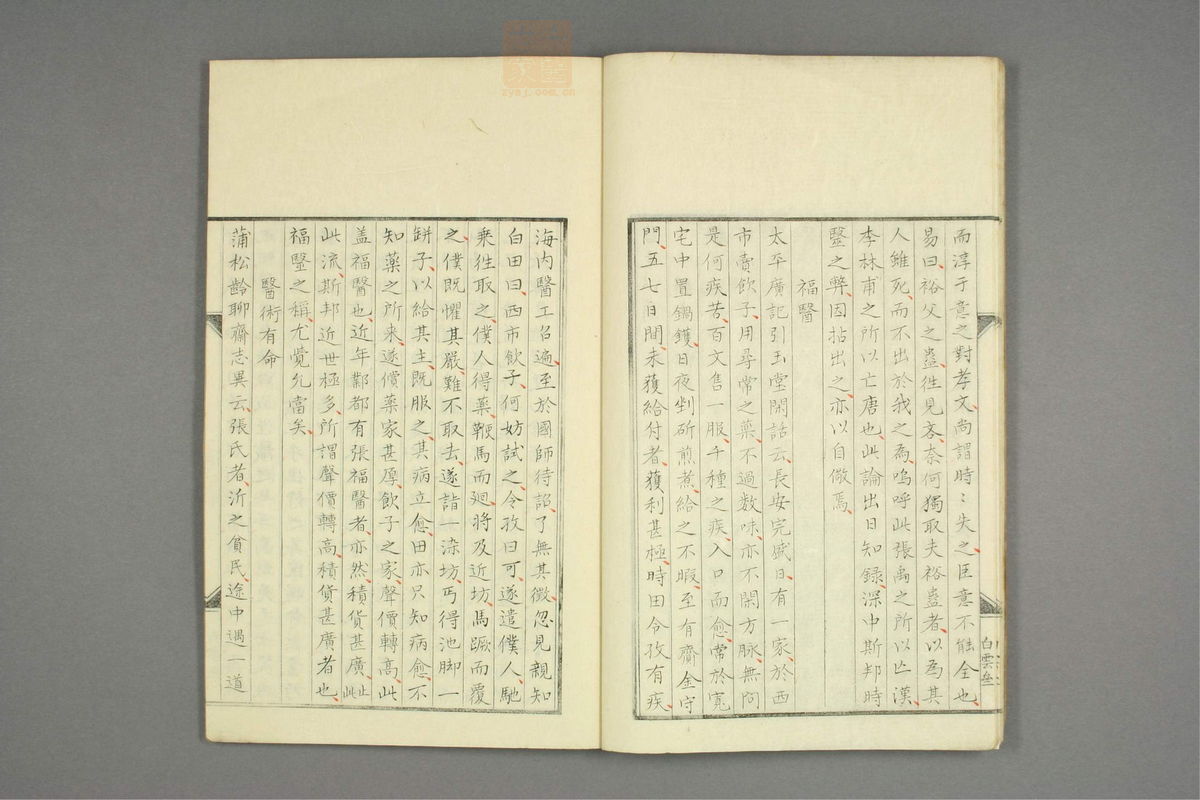 而淳于意之對孝文尚謂時〻失之臣意不能全也
易曰裕父之蠱徃見吝奈何獨取夫裕蠱者以為其
人雖死而不出於我之為嗚呼此張禹之所以亡漢
李林甫之所以亡唐也此論出日知録深中斯邦時
毉之弊因拈出之亦以自儆焉
福毉
太平廣記引玉堂閑話云長安完盛日有一家於西
市賣飲子用尋常之藥不過数味亦不閑方脉無問
是何疾苦百文售一服千種之疾入口而愈常於寬
宅中置鍋鑊日夜剉斫煎煮給之不暇至有齎金守
門五七日間未獲給付者獲利甚極時田令孜有疾
白雲
海内醫工召遍至於國師待詔了無其徵忽見親知
白田曰西市飲子何妨試之令孜曰可遂遣僕人馳
乗徃取之僕人得藥鞭馬而廻將及近坊馬蹶而覆
之僕既懼其嚴難不取去遂詣一染坊丐得池脚一
缾子以給其主既服之其病立愈田亦只知病愈不
知藥之所来遂償藥家甚厚飲子之家聲價轉高此
盖福醫也近年鄴都有張福醫者亦然積貨甚廣止此
此流斯邦近世極多所謂聲價轉高積貨甚廣者也
福毉之稱尤覺允當矣
醫術有命
蒲松齡聊齋志異云張氏者沂之貧民途中遇一道
zysj.com.cn